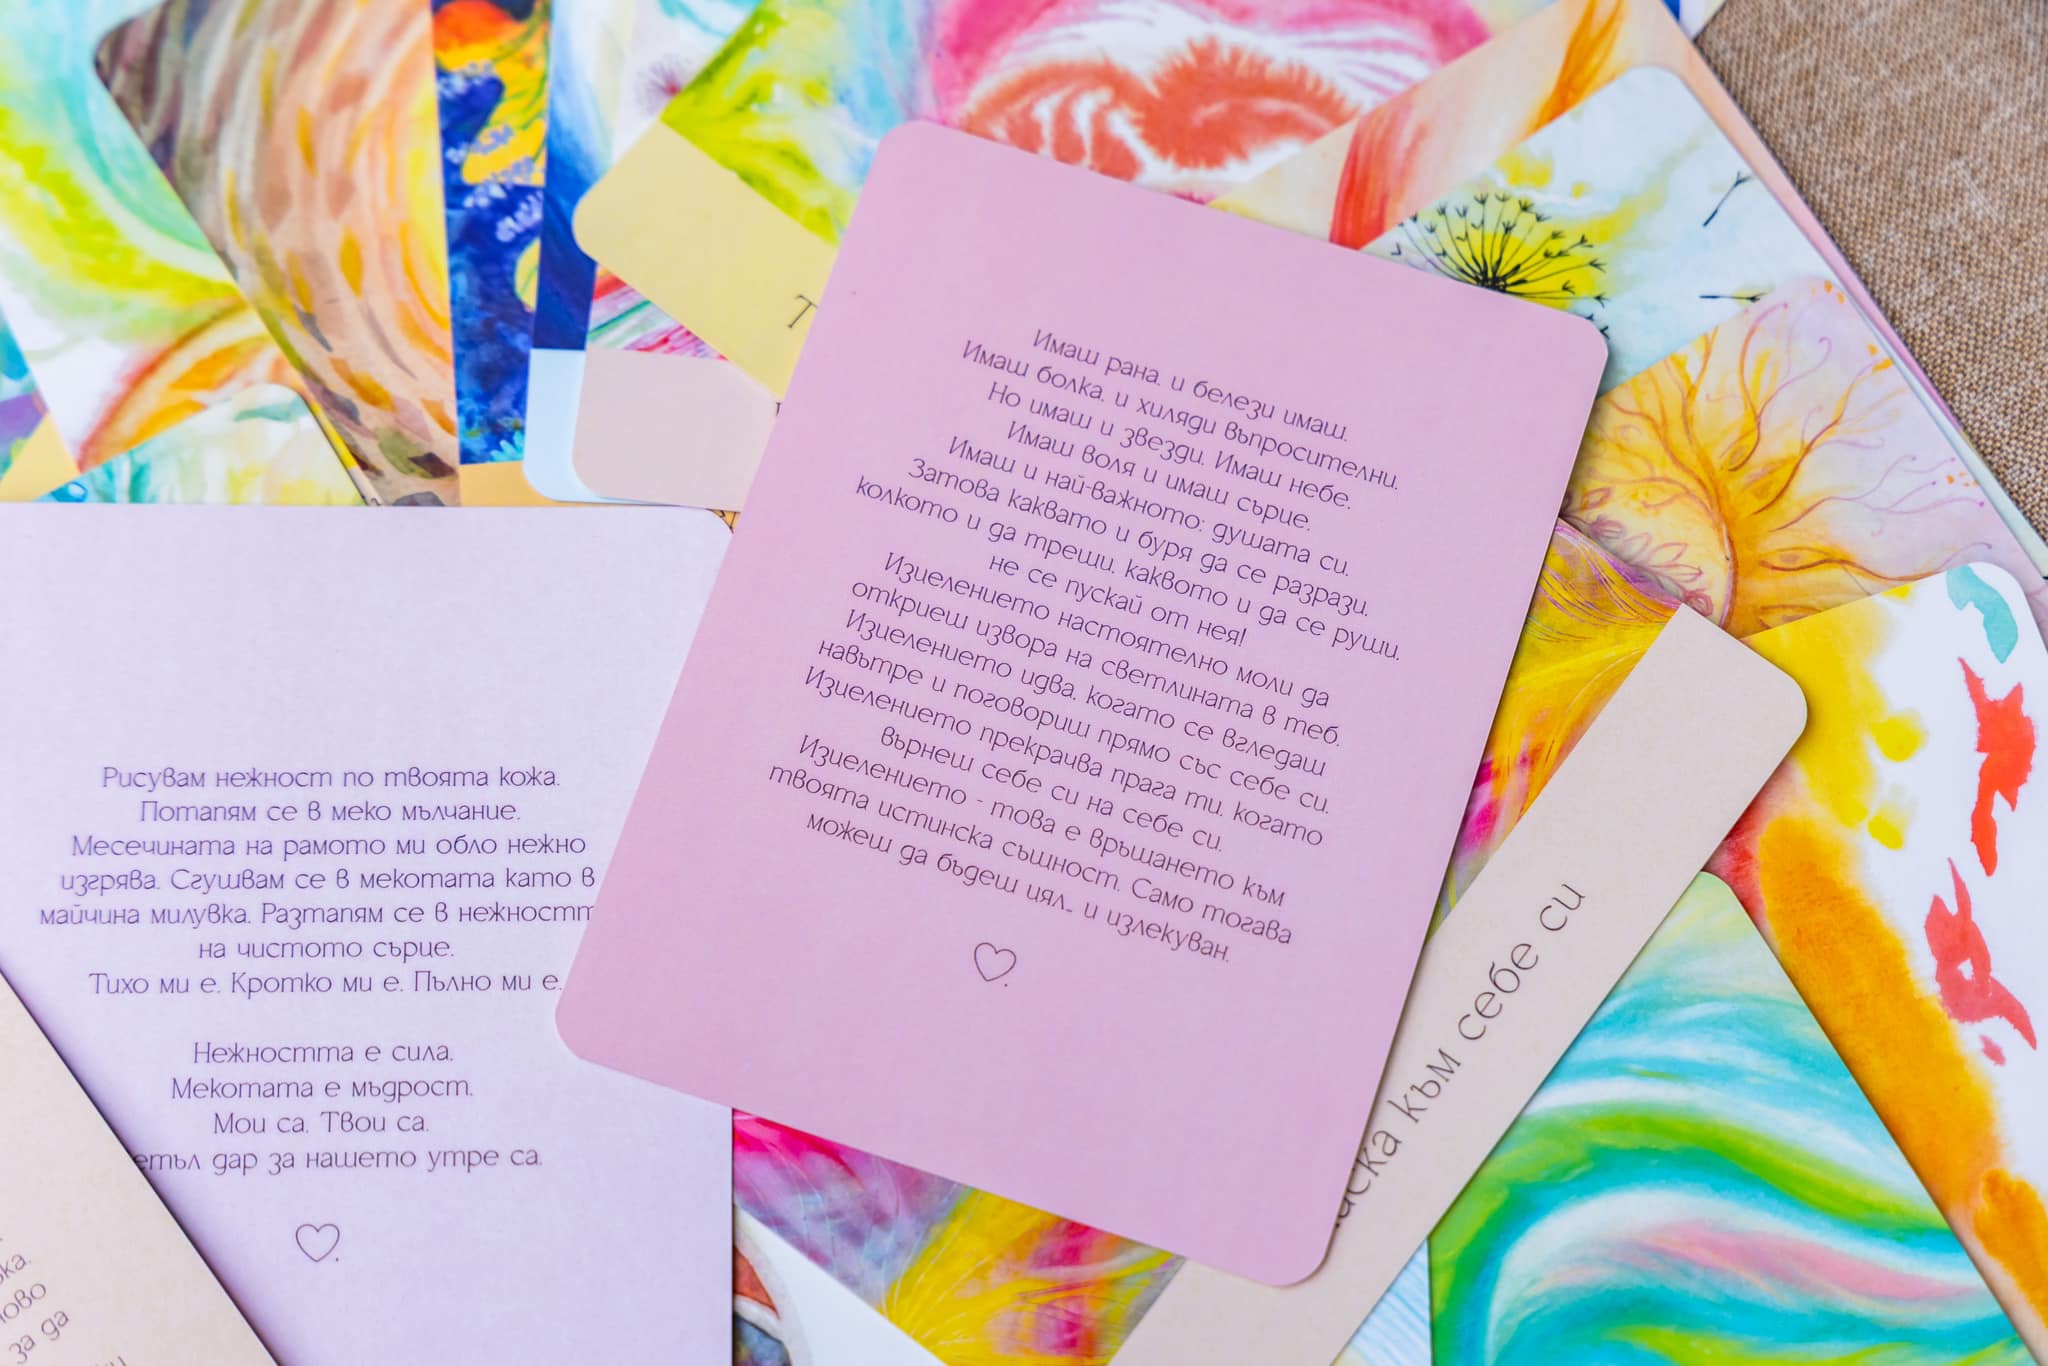 Имаш рана, и белези имаш.
Имаш болка, и хиляди въпросителни.
Но имаш и звезди. Имаш небе.
Имаш воля и имаш сърце.
Имаш и най-важното: душата си.
Затова каквато и буря да се разрази,
колкото и да трещи, каквото и да се руши,
не се пускай от нея!
Изцелението настоятелно моли да
откриеш извора на светлината в теб.
Изцелението идва, когато се вгледаш
навътре и поговориш прямо със себе си.
Изцелението прекрачва прага ти, когато
върнеш себе си на себе си.
Изцелението - това е връщането към
твоята истинска същност. Само тогава
можеш да бъдеш цял... и излекуван.
Рисувам нежност по твоята кожа.
Потапям се в меко мълчание.
Месечината на рамото ми обло нежно
изгрява. Сгушвам се в мекотата като в
майчина милувка. Разтапям се в нежност
на чистото сърце.
Тихо ми е. Кротко ми е. Пълно ми е.
Нежността е сила.
Мекотата е мъдрост.
Мои са. Твои са.
дар за нашето утре са.
към себе си
Т
за да